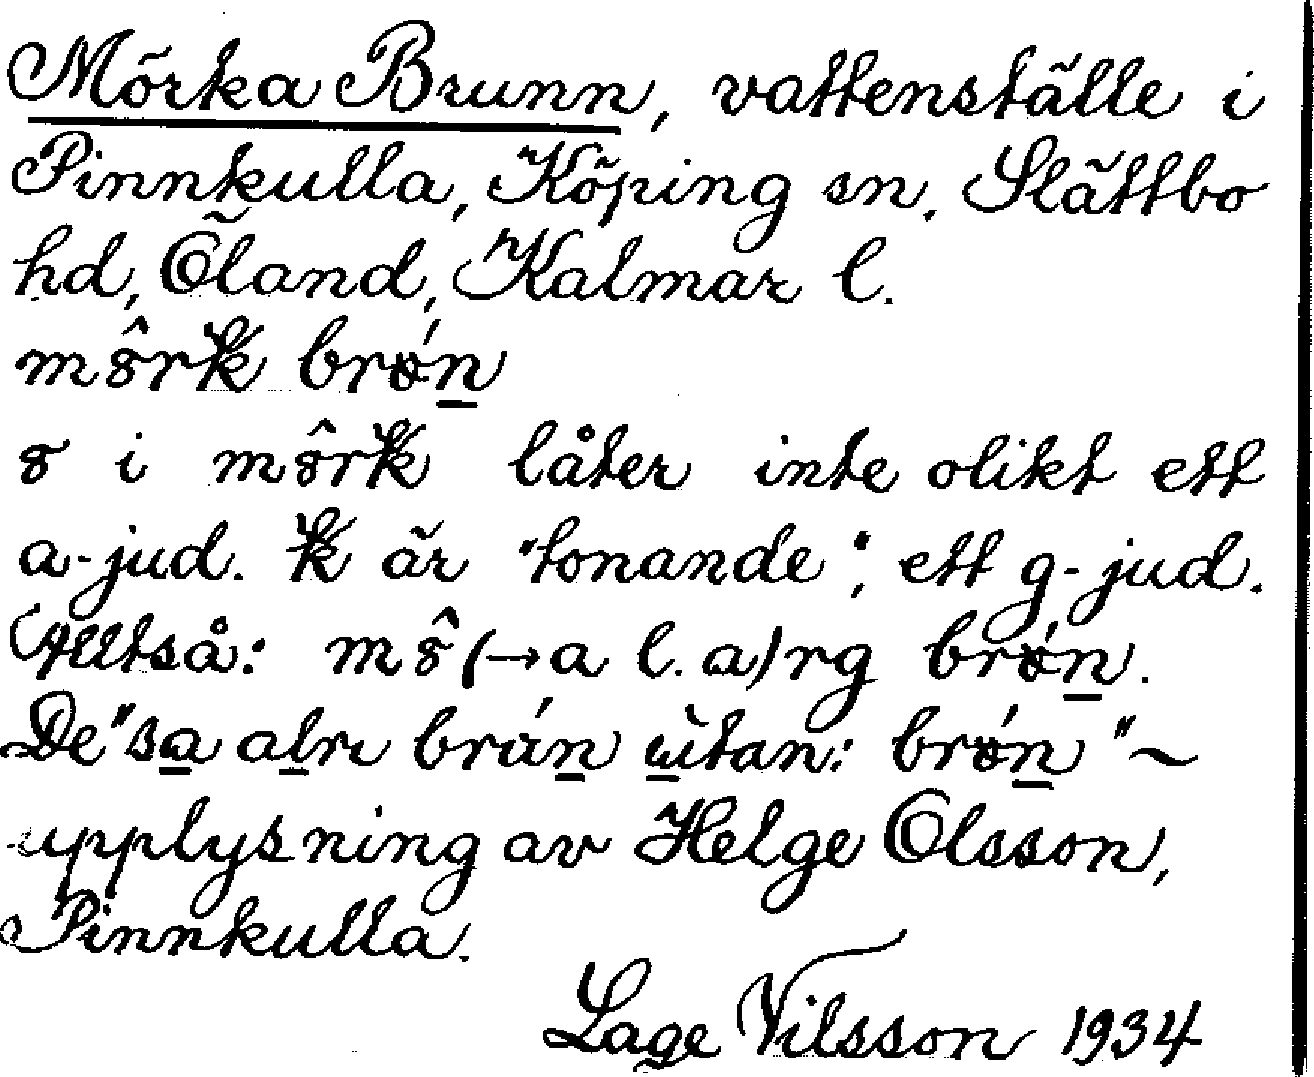 Mörka Brunn, vattenställe i
Pinnkulla, Köping sn. Slättbo
hd, Öland, Kalmar l.
môrk brøń
ɞ i môrk låter inte olikt ett
a-jud. k är "tonande", ett g-jud.
Alltså: mô (→a l. a)rg brøń.
De "sa alri brún ùtan: brøń" ~
upplysning av Helge Olsson,
Pinnkulla.
Lage Nilsson 1934